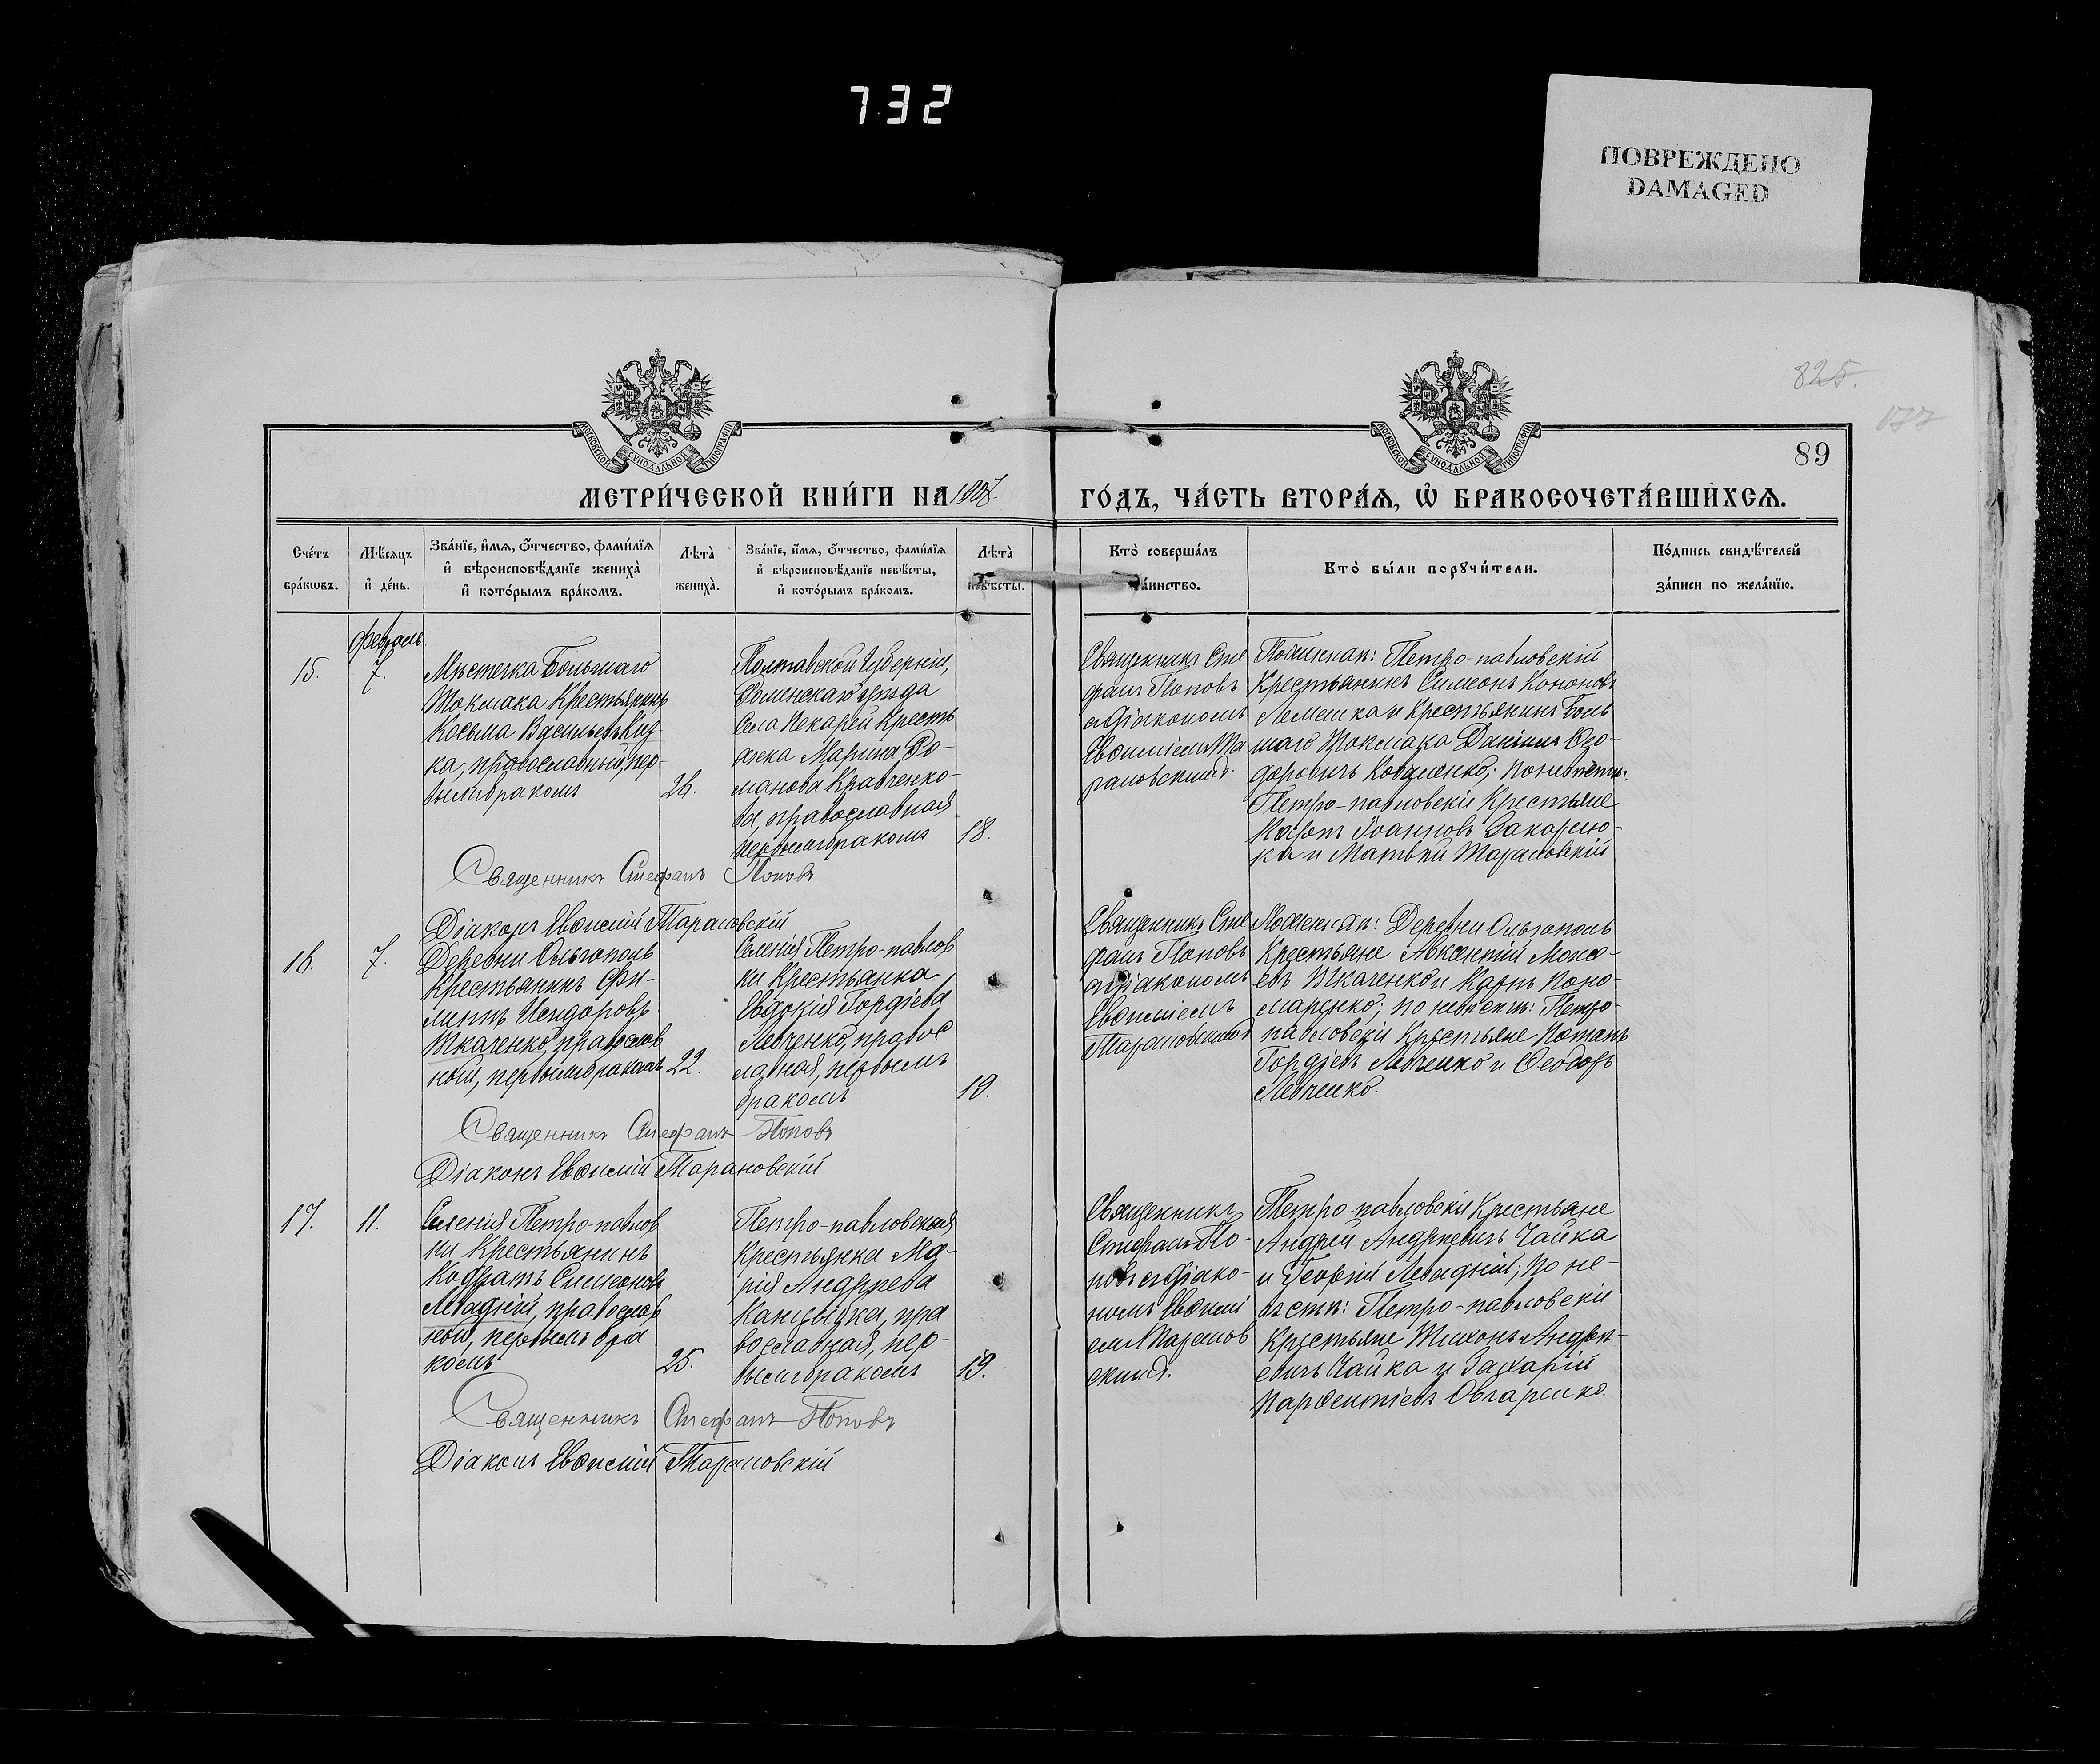 732
ПОВРЕЖДЕНО
DAMAGED
825.
177
89
МОСКОВСКОЙ СѴНОДАЛЬНОЙ ТИПОГРАФІИ
МОСКОВСКОЙ СѴНОДАЛЬНОЙ ТИПОГРАФІИ
МЕТРИ́ЧЕСКОЙ КНИ́ГИ НА 1907.
ГО́ДЪ, ЧА́СТЬ ВТОРА́Ѧ, Ѽ БРАКОСОЧЕТА́ВШИХСѦ.
Сче́тъ
бра́кѡвъ.
Мѣ́сѧцъ
и҆ де́нь.
Зва́нїе, и҆́мѧ, ѻ҆́тчество, фами́лїѧ
и҆ вѣроисповѣ́данїе жениха̀
и҆ кото́рымъ бра́комъ.
Лѣ́та̀
жениха̀.
Зва́нїе, и҆́мѧ, ѻ҆́тчество, фами́лїѧ
и҆ вѣроисповѣ́данїе невѣ́сты,
и҆ кото́рымъ бра́комъ.
Лѣ́та̀
невѣ́сты.
Кто̀ соверша́лъ
та́инство.
Кто̀ бы́ли порꙋчи́тели.
По́дпись свидѣ́телей
за́писи по жела́нїю.
февраль
15.
7.
Мѣстечка Большаго
Токмака Крестьянинъ
Косьма Васильевъ
ка, православный, пер-
вымъ бракомъ
26.
Полтавской Губерніи,
Роменскаго уѣзда
Села Пекарей Кресть
янка Марина Ро-
манова Кравченко-
ва, православная
первымъ бракомъ
18.
Священникъ Сте
фанъ Поповъ
съ діакономъ
Евѳиміемъ Та
рановскимъ.
По женихѣ: Петро-павловскій
Крестьянинъ Симеонъ Кононовъ
Лемешка и Крестьянинъ Боль
шаго Токмака Даніилъ Ѳео-
доровичъ; по невѣстѣ:
Петро-павловскіе Крестьяне
Карпъ Іоанновъ
ка и Матвѣй Тарановскій
Священникъ Стефанъ Поповъ
Діаконъ Евѳимій Тарановскій
16.
7.
Деревни Ольгополь
Крестьянинъ Фи-
липпъ Исидоровъ
Ткаченко, православ
ный, первымъ бракомъ
22.
Селенія Петро-павлов
ки Крестьянка
Евдокія Гордіева
Левченко, правос
лавная, первымъ
бракомъ
19.
Священникъ Сте
фанъ Поповъ
съ діакономъ
Евѳиміемъ
Тарановскимъ
По женихѣ: Деревни Ольгополь
Крестьяне Авксентій
евъ Ткаченко и Карпъ Поно-
маренко; по невѣстѣ: Петро-
павловскіе Крестьяне Потапъ
Гордіевъ Левченко и Ѳеодоръ
Левченко.
Священникъ Стефанъ Поповъ
Діаконъ Евѳимій Тарановскій
17.
11.
Селенія Петро-павлов
ки Крестьянинъ
Кодратъ Симеоновъ
Левадній, православ
ный, первымъ бра
комъ
25.
Петро-павловская
Крестьянка Ма-
рія Андреева
, пра
вославная, пер-
вымъ бракомъ
19.
Священникъ
Стефанъ По-
повъ съ діако-
номъ Евѳимі
емъ Таранов
скимъ.
Петро-павловскіе Крестьяне
Андрей Андреевичъ Чайка
и Георгій Левадній; по не-
вѣстѣ: Петро-павловскіе
Крестьяне Тихонъ Андре-
евичъ Чайка и Захарій
Парѳентіевъ Овчаренко.
Священникъ Стефанъ Поповъ
Діаконъ Евѳимій Тарановскій